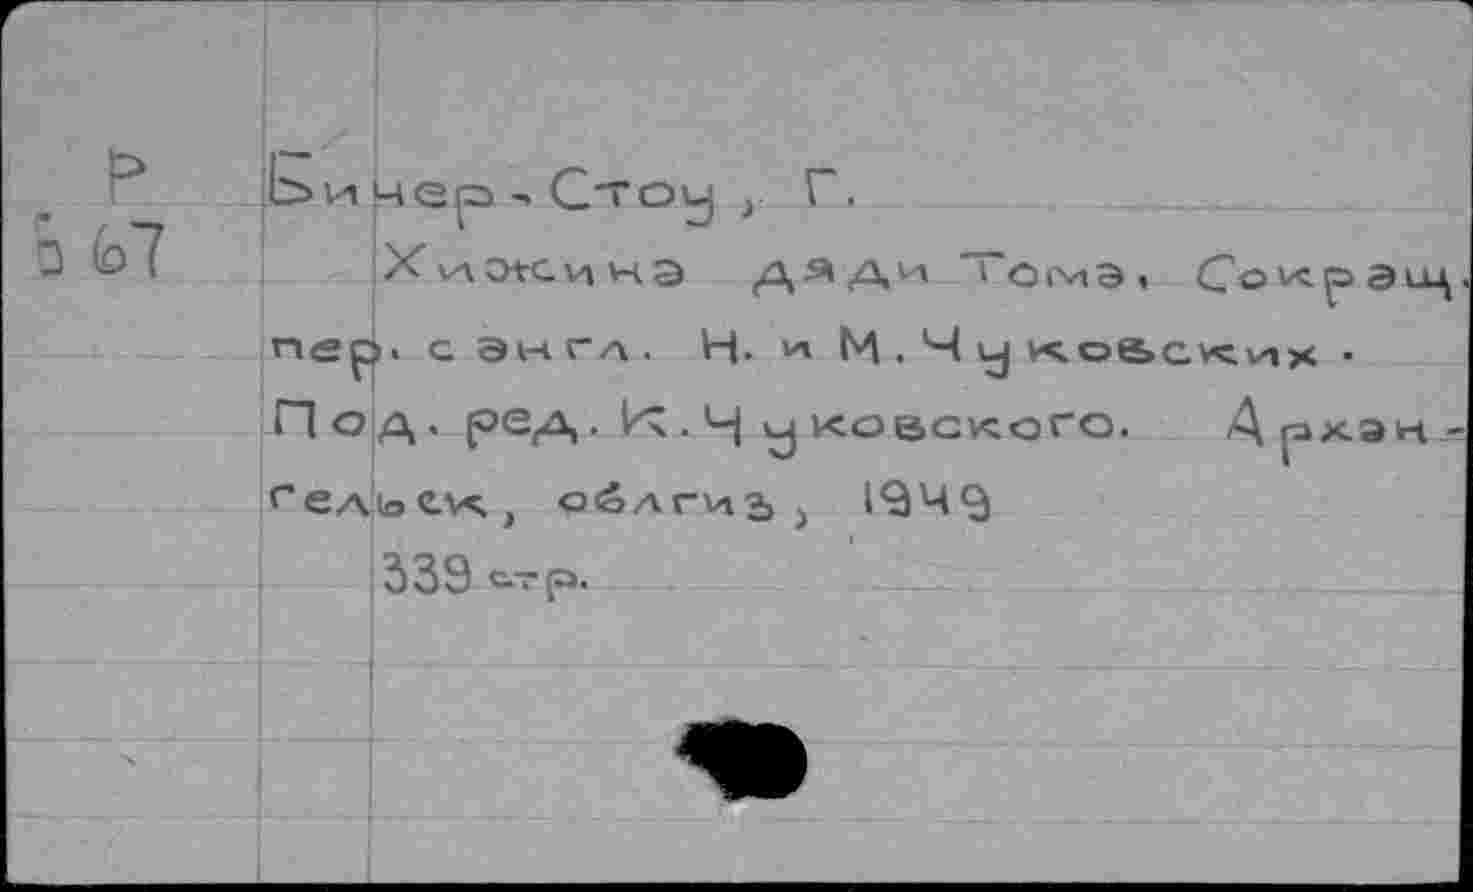 Р
Б 67
Бичер-Стоу, Г.
Хижина дяди Тома, Сокращ.
пер. с англ. Н. и М. Чуковских.
Под. ред. К. Чуковского. Архан-
гельск, облгиз, 1949
339 стр.